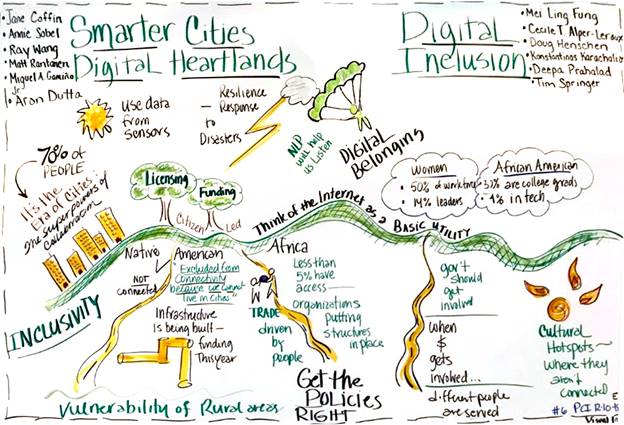 • Jane Coffin
• Annie Sobel
• Ray Wang
• Matt Rantanen
• Miguel A. Gamiño
Jr.
• Aron Dutta
Smarter Cities
Digital Heartlands
Digital
Inclusion
• Mei Ling Fung
• Doug Henschen
• Deepa Prahalad
• Tim Springer
Use data
from
Sensors
Resilience
— Response
to
Disasters
NLP
will help
us Listen
Digital
Belonging
70% of
PEOPLE
It's the
Era of Cities-
the superpowers of
collaboration
Licensing
Funding
Citizen Led
Think of the Internet as a BASIC UTILITY
Women
• 50% of workforce
• 14% leaders
African American
are college grads
• 4% in tech
INCLUSIVITY
Native American
NOT
connected
Excluded from
connectivity
because we "cannot
live in cities"
Infrastructure
is being built—
funding
This year
Africa
Less than
5% have
access—
Organizations
putting
structures
in place
TRADE
driven
by
people
gov't
should
get
involved
when
$
gets
involved...
different people
are served
Cultural
Hotspots~
where they
aren't
connected
Get the
POLICIES
RIGHT
Vulnerability of Rural areas